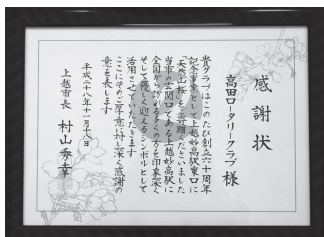 感謝状
高田ロータリークラブ 様
貴クラブはこのたび創立六十周年
記念事業として上越妙高駅東口に
「天然山桜」をご寄贈くださいました
当市の玄関口である上越妙高駅に
全国から訪れる多くの方を印象深く
そして優しく迎えるシンボルとして
活用させていただきます
ここにそのご厚意に対し深く感謝の
意を表します
平成二十八年十一月十八日
上越市長 村山秀幸